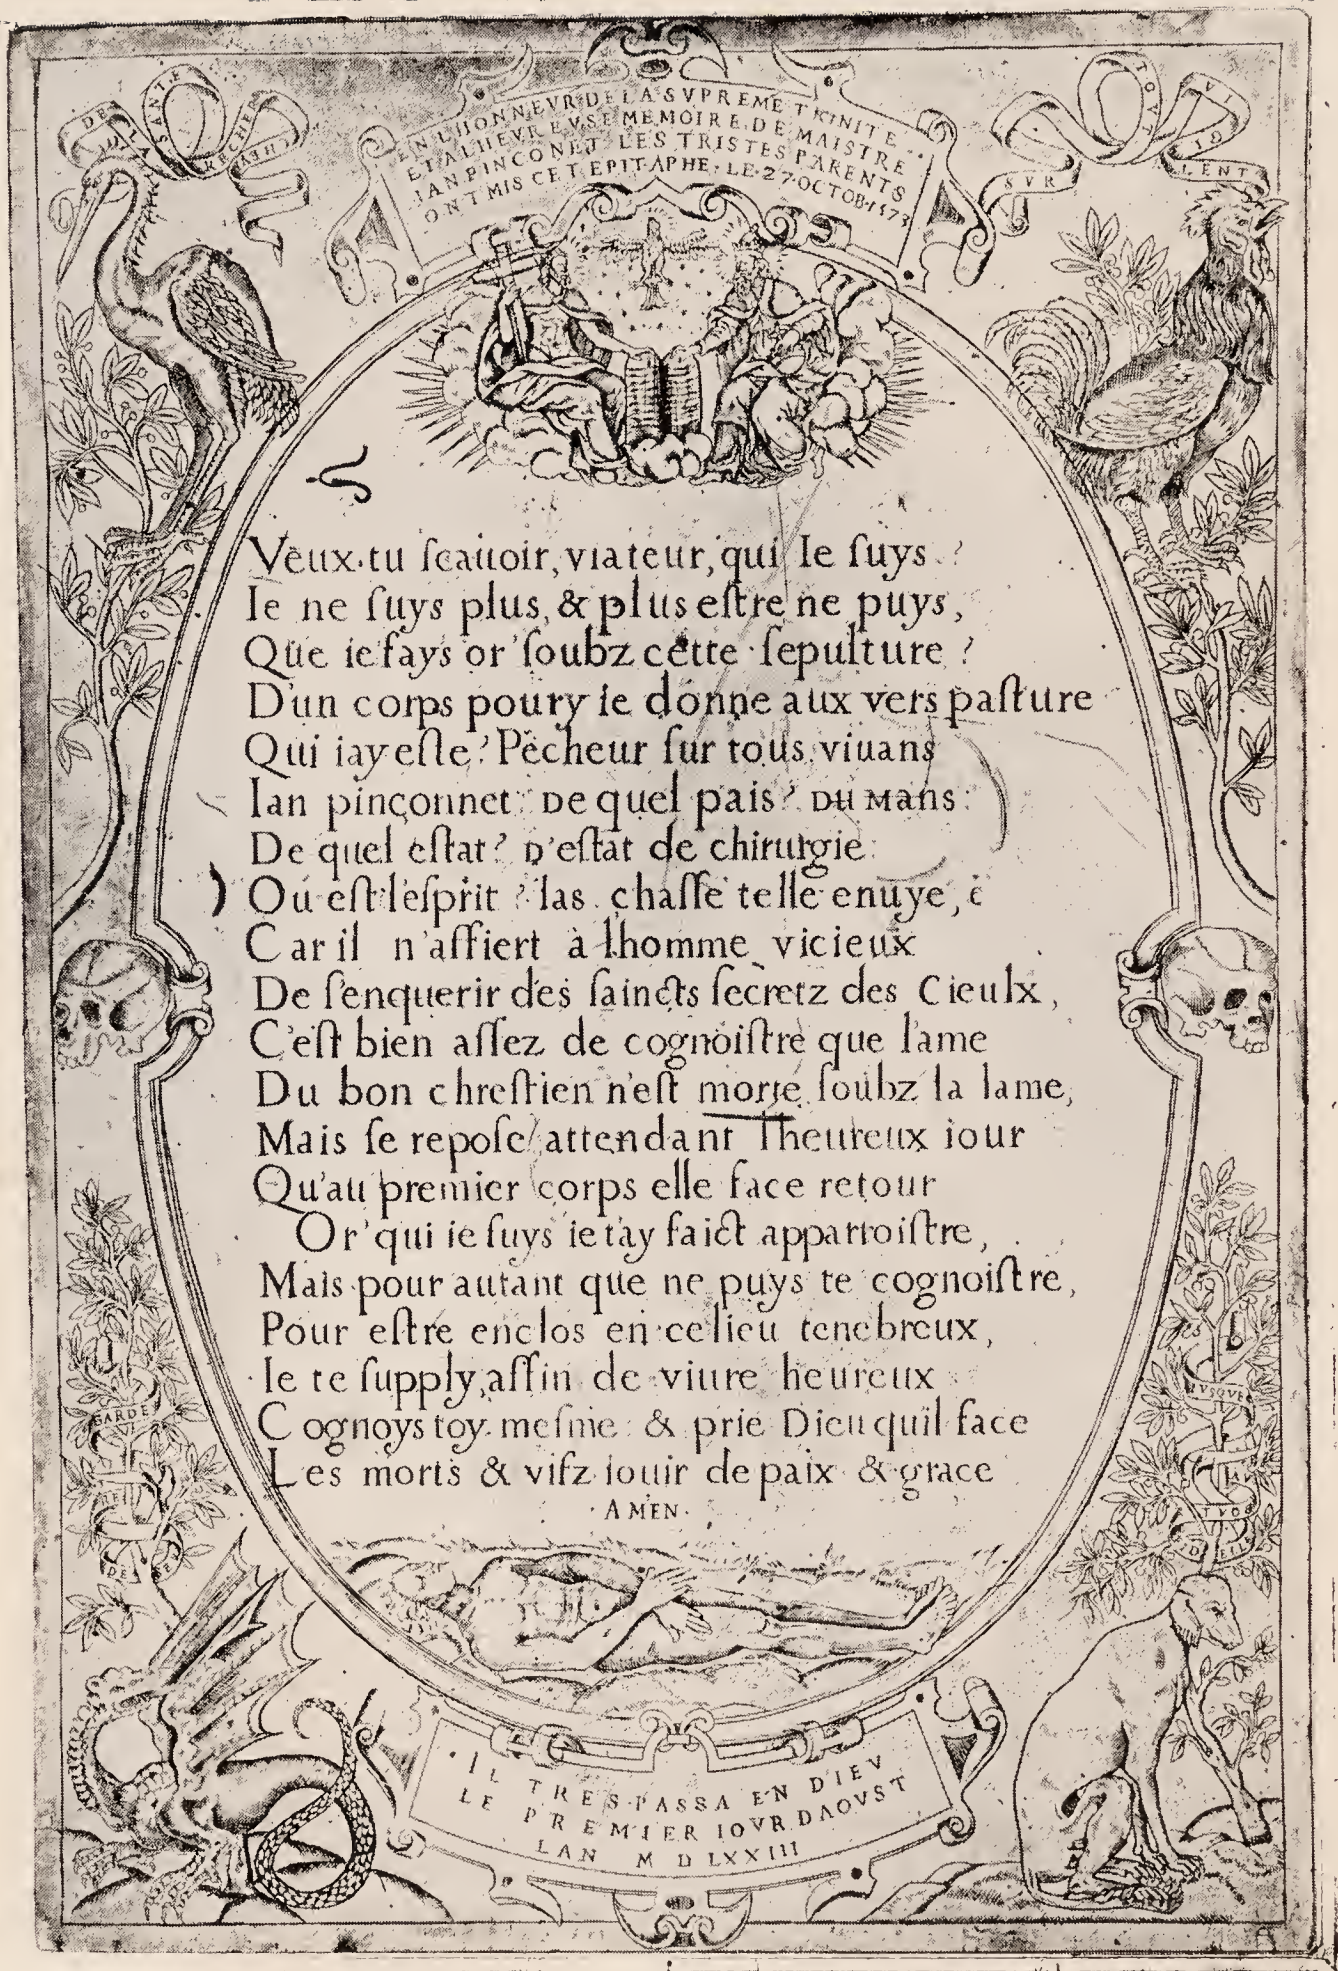 EN LHONNEVR DE LA SVPREME TRINITE
ET A LHEVREVSE MEMOIRE DE MAISTRE
IAN PINCONET LES TRISTES PARENTS
ONT MIS CET EPITAPHE. LE. 27. OCTOB. 1573
DE LA SANTE
CHERCHEVR
SVR TOVT VIGILENT
Veux-tu ſcauoir, viateur, qui Ie ſuys ?
Ie ne ſuys plus, & plus eſtre ne puys,
Que ie fays or' ſoubz cette ſepulture ?
D'un corps poury ie donne aux vers paſture
Qui iay eſte? Pècheur ſur tous viuans
Ian pinçonnet: De quel pais? DU Mans:
De quel eſtat? D'eſtat de chirurgie:
Ou eſt l'eſprit ? las chaſſe telle enuye,
Car il n'affiert à lhomme vicieux
De ſ'enquerir des ſaincts ſecretz des Cieulx,
C'eſt bien aſſez de cognoiſtre que l'ame
Du bon chreſtien n'eſt morte ſoubz la lame,
Mais ſe repoſe attendant l'heureux iour
Qu'au premier corps elle face retour
Or' qui ie ſuys ie t'ay faict apparroiſtre,
Mais pour autant que ne puys te cognoiſtre,
Pour eſtre enclos en ce lieu tenebreux,
Ie te ſupply, affin de viure heureux
Cognoys toy-meſme: & prie Dieu quil face
Les morts & vifz iouir de paix & grace
·AMEN·
GARDE
DE
IVSQVE
LA
D'EIL
IL TRESPASSA EN DIEV
LE PREMIER IOVR DAOVST
LAN M D LXXIII